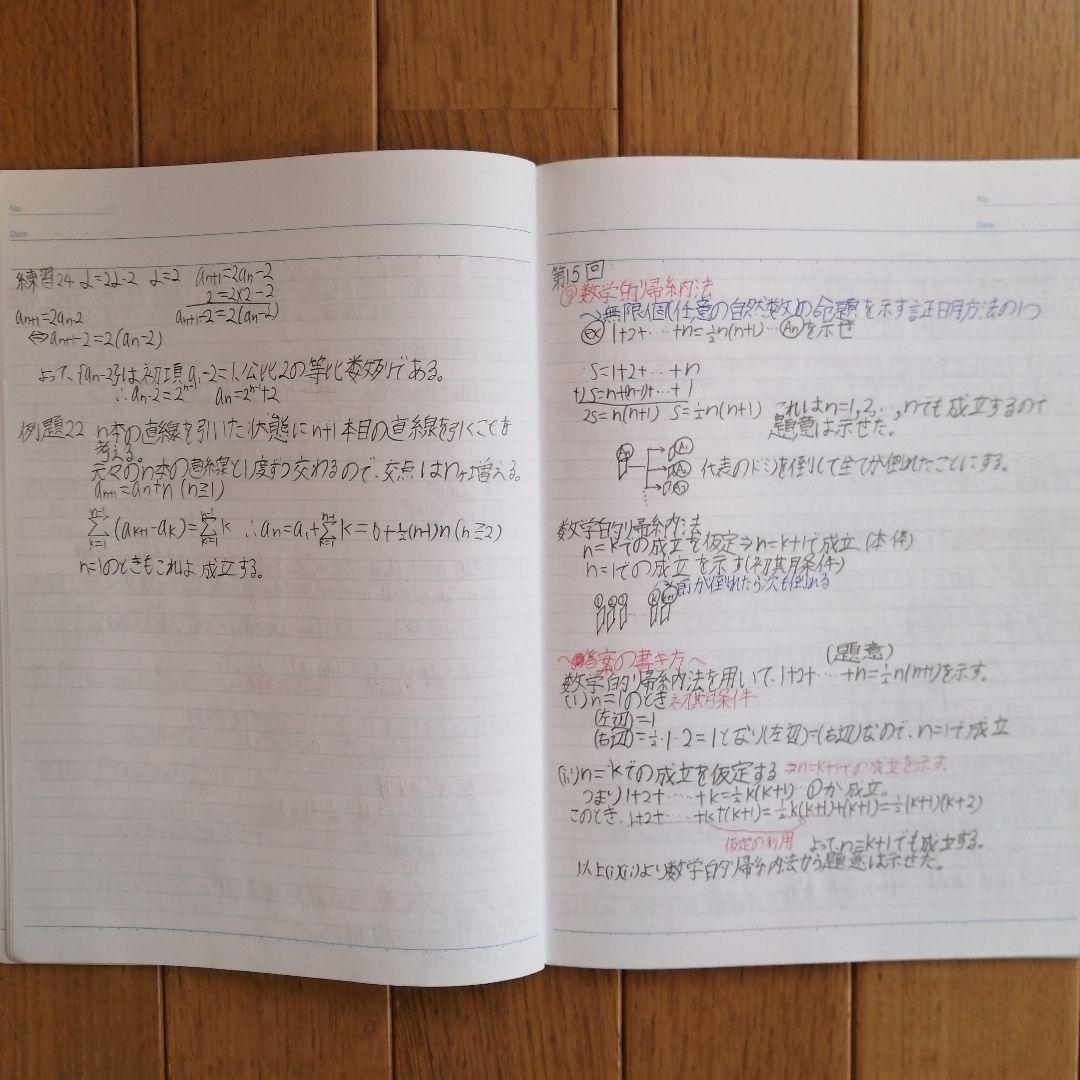 No.
Date
練習24 α=2α-2 α=2 an+1=2an-2
2=2×2-2
an+1=2an-2 an+1-2=2(an-2)
⇔an+1-2=2(an-2)
よって、{an-2}は初項a1-2=1、公比2の等比数列である。
∴an-2=2^(n-1) an=2^(n-1)+2
例題22 n本の直線を引いた状態にn+1本目の直線を引くことを
考える。
元々のn本の直線と1度ずつ交わるので、交点はnヶ増える。
an+1=an+n (n≧1)
Σ[k=1→n-1](ak+1-ak)=Σ[k=1→n-1]k ∴an=a1+Σ[k=1→n-1]k=0+½(n-1)n (n≧2)
n=1のときもこれは成立する。
No.
Date
第15回
数学的帰納法
→無限個(任意の自然数)の命題を示す証明方法の1つ
ex 1+2+……+n=½n(n+1)…(An)を示せ
S=1+2+…+n
+)S=n+(n-1)+…+1
2S=n(n+1) S=½n(n+1) これはn=1,2,…,nでも成立するので
題意は示せた。
An A1 A2 A3
代表のドミノを倒して全てが倒れたことにする。
数学的帰納法
n=kでの成立を仮定⇒n=k+1で成立(本体)
n=1での成立を示す(初期条件)
前が倒れたら次も倒れる
1 2 3 … k k+1
〜答案の書き方〜
(題意)
数学的帰納法を用いて、1+2+……+n=½n(n+1)を示す。
(i)n=1のとき 初期条件
(左辺)=1
(右辺)=½・1・2=1となり(左辺)=(右辺)なので、n=1で成立
(ii)n=kでの成立を仮定する ⇒n=k+1での成立を示す
つまり1+2+……+k=½k(k+1)…①が成立。
このとき、1+2+……+k+(k+1)=½k(k+1)+(k+1)=½(k+1)(k+2)
仮定の利用 よってn=k+1でも成立する。
以上(i)(ii)より数学的帰納法から題意は示せた。